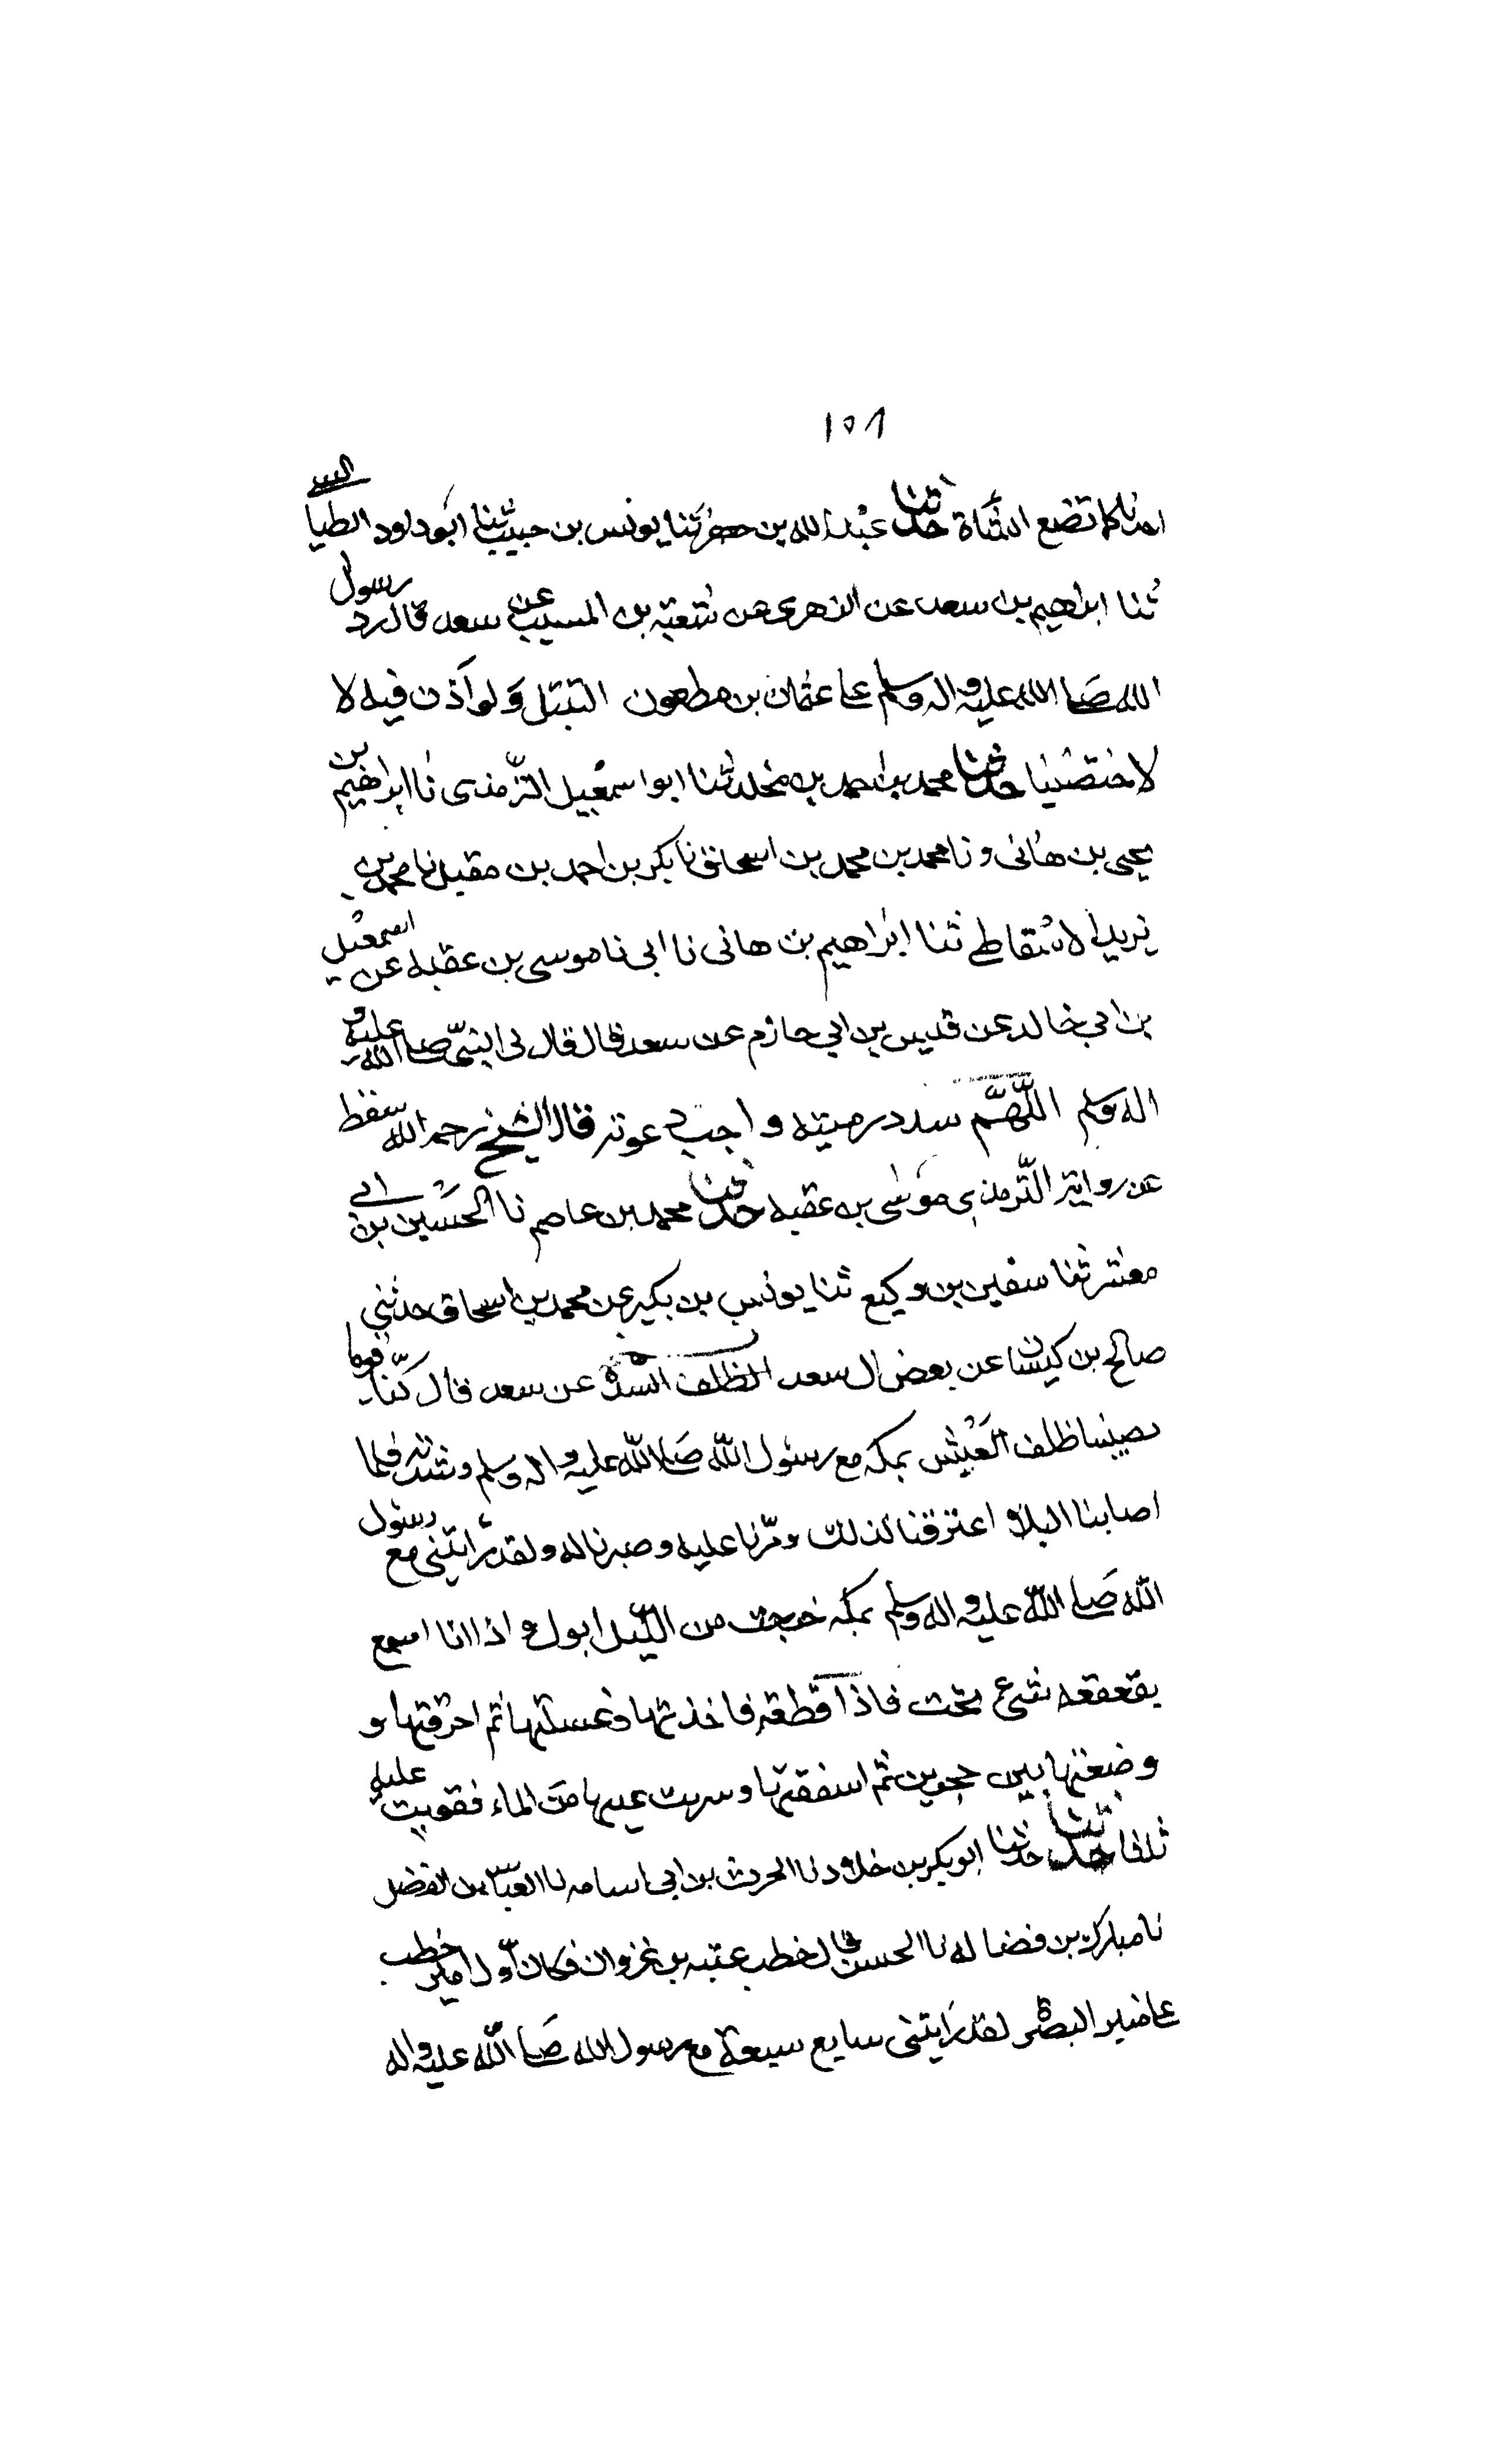 ١٥٨
احدنا كما تضع الشاة حدثنا عبد الله بن جعفر ثنا يونس بن حبيب ثنا ابو داود الطيالسي
ثنا ابراهيم بن سعد عن الزهري عن سعيد بن المسيب عن سعد قال رد رسول
الله صلى الله عليه واله وسلم على عثمان بن مظعون التبتل ولو اذن فيه لا
لاختصينا حدثنا محمد بن احمد بن مخلد ثنا ابو اسمعيل الترمذي نا ابراهيم بن
يحيى بن هانى ونا محمد بن محمد بن اسحاق نا بكر بن احمد بن مقبل نا محمد بن
يزيد الاسقاطي ثنا ابراهيم بن هانى نا ابى نا موسى بن عقبه عن اسمعيل
بن ابي خالد عن قيس بن ابي حازم عن سعد قال قال لى النبي صلى الله عليه و
اله وسلم اللهم سدد رميته واجب دعوته قال الشيخ رحمه الله سقط
عن رواية الترمذي موسى بن عقبه حدثنا محمد بن عاصم نا الحسين بن ابي
معشر ثنا سفين بن وكيع ثنا يونس بن بكير عن محمد بن اسحاق حدثني
صالح بن كيسان عن بعض ال سعد الظلف الشدة عن سعد قال كنا قوما
يصيبنا ظلف العيش بمكه مع رسول الله صلى الله عليه واله وسلم وشدته فلما
اصابنا البلاء اعترفنا لذلك ومرنا عليه وصبرنا له ولقد رايتنى مع رسول
الله صلى الله عليه واله وسلم بمكه خرجت من الليل ابول واذا انا اسمع
بقعقعه شيء تحت فاذا قطعه فاخذتها وغسلتها ثم احرقتها و
وضعتها بين حجرين ثم استفقتها وشربت عليها من الماء فقويت عليه
ثلثا حدثنا حدثنا ابو بكر بن خلاد نا الحرث بن ابى اسامه نا العباس بن الفضل
نا مبارك بن فضاله نا الحسن قال خطب عتبه بن غزوان فكان اول امير خطب
على منبر البصره لقد رايتنى سابع سبعة مع رسول الله صلى الله عليه واله